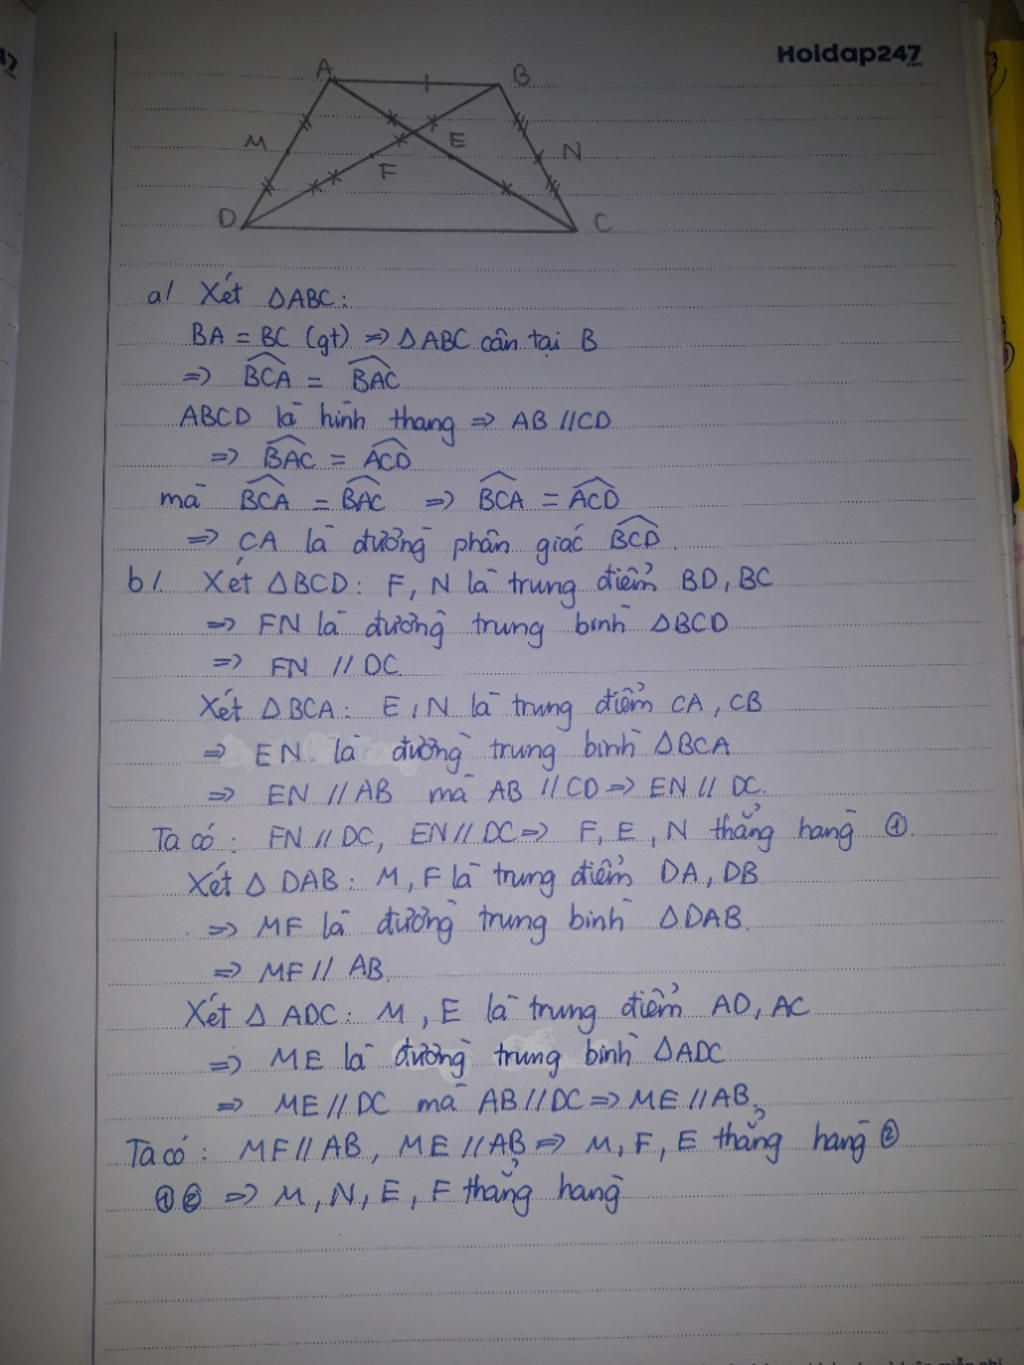 47
Hoidap247
.com
A
B
M
E
N
F
D
C
a/ Xét △ABC:
BA = BC (gt) => △ABC cân tại B
=> BCA = BAC
ABCD là hình thang => AB // CD
=> BAC = ACD
mà BCA = BAC => BCA = ACD
=> CA là đường phân giác BCD.
b/. Xét △BCD: F, N là trung điểm BD, BC
=> FN là đường trung bình △BCD
=> FN // DC
Xét △BCA: E, N là trung điểm CA, CB
=> EN là đường trung bình △BCA
=> EN // AB mà AB // CD => EN // DC.
Ta có: FN // DC, EN // DC => F, E, N thẳng hàng ①.
Xét △ DAB: M, F là trung điểm DA, DB
=> MF là đường trung bình △DAB.
=> MF // AB.
Xét △ ADC: M, E là trung điểm AD, AC
=> ME là đường trung bình △ADC
=> ME // DC mà AB // DC => ME // AB.
Ta có: MF // AB, ME // AB => M, F, E thẳng hàng ②
①② => M, N, E, F thẳng hàng